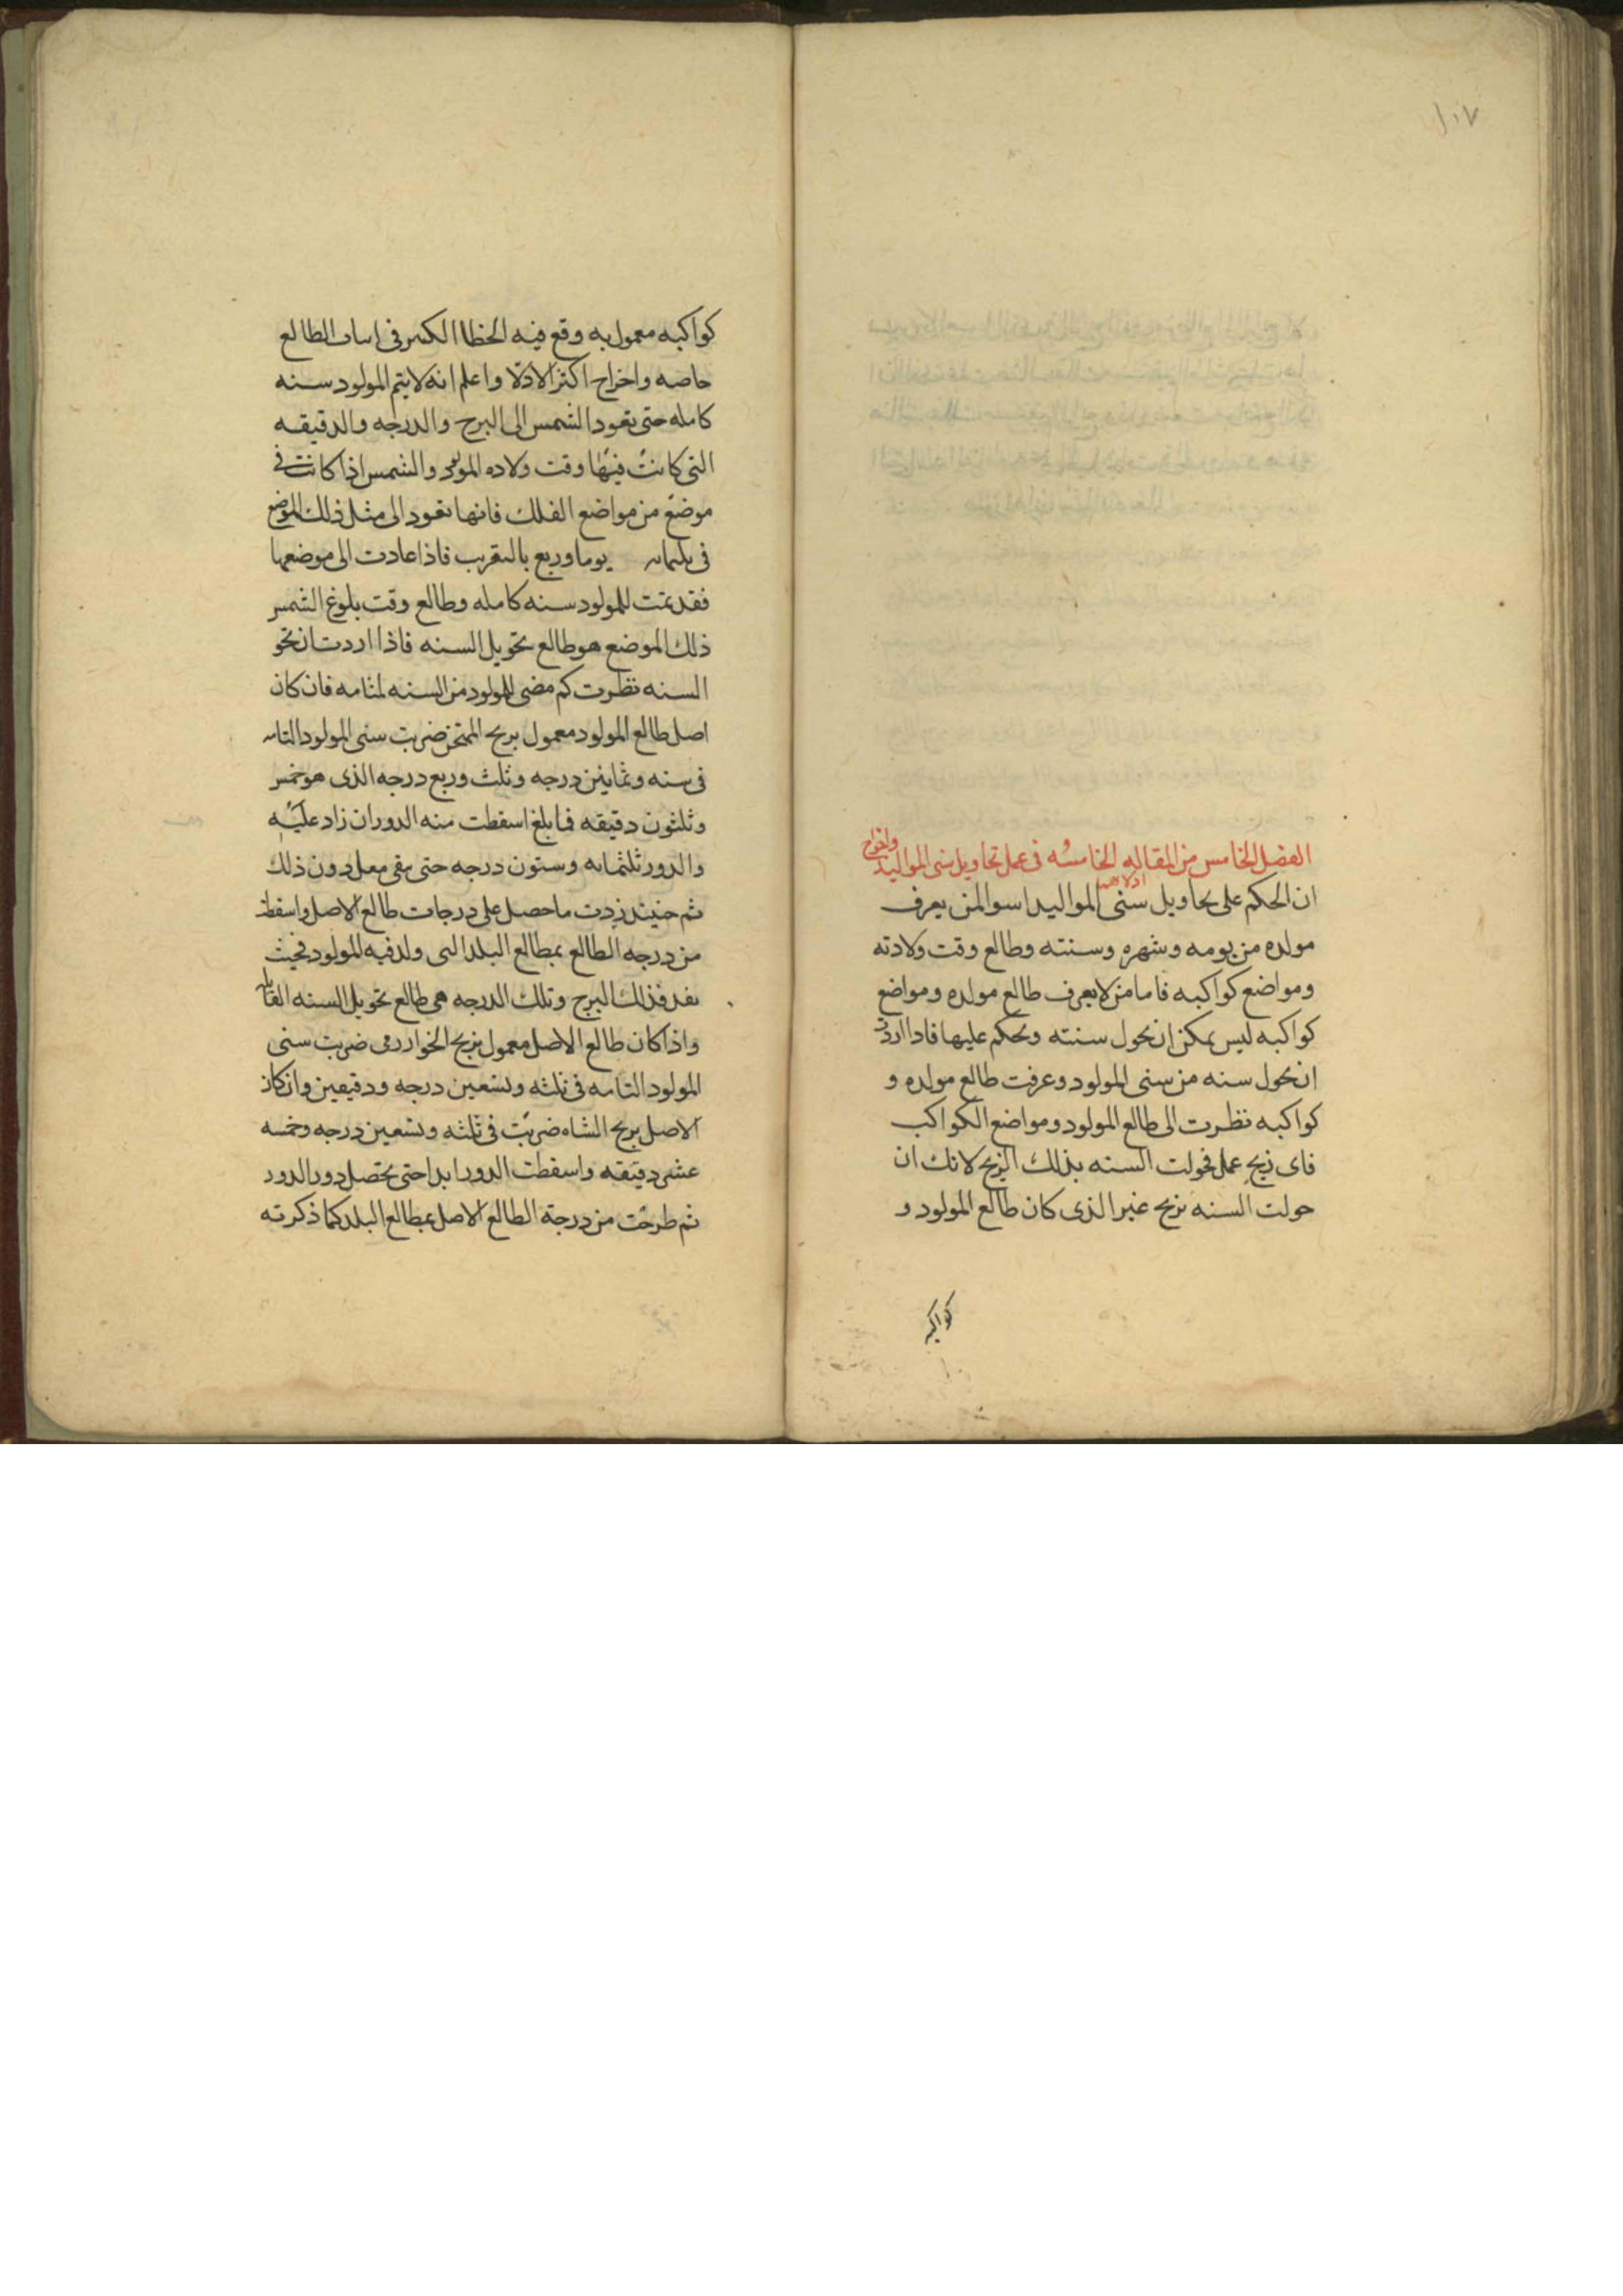 ١٠٧
الفصل الخامس من المقاله الخامسه فى عمل تحاويل سنى المواليد واخراج
ادلاهم
ان الحكم على تحاويل سنى المواليد اسوا لمن يعرف
مولده من يومه وشهره وسنته وطالع وقت ولادته
ومواضع كواكبه فاما من لا يعرف طالع مولده ومواضع
كواكبه ليس يمكن ان نحول سنته ونحكم عليها فاذا اردت
ان نحول سنه من سنى المولود وعرفت طالع مولده و
كواكبه نظرت الى طالع المولود ومواضع الكواكب
فاى زيج عمل فحولت السنه بذلك الزيج لانك ان
حولت السنه بزيج غير الذى كان طالع المولود و
كواكبه
كواكبه معمول به وقع فيه الخطاا الكثير فى اساب الطالع
خاصه واخراج اكثر الادلا واعلم انه لا يتم المولود سنه
كامله حتى تعود الشمس الى البرج والدرجه والدقيقه
التى كانت فيها وقت ولاده المولود والشمس اذا كانت فى
موضع من مواضع الفلك فانها تعود الى مثل ذلك الموضع
فى ثلثمايه يوما وربع بالتقريب فاذا عادت الى موضعها
فقد تمت للمولود سنه كامله وطالع وقت بلوغ الشمس
ذلك الموضع هو طالع تحويل السنه فاذا اردت ان تحو
السنه نظرت كم مضى للمولود من السنه لمثامه فان كان
اصل طالع المولود معمول بزيج الممتحن ضربت سنى المولود التامه
فى سته وثمانين درجه وثلث وربع درجه الذى هو خمس
وثلثون دقيقه فما بلغ اسقطت منه الدور ان زاد عليه
والدور ثلثمايه وستون درجه حتى يبقى معك دون ذلك
ثم حينئذ زدت ما حصل على درجات طالع الاصل واسقطت
من درجه الطالع بمطالع البلد التى ولد فيه المولود فحيث
نفد فذلك البرج وتلك الدرجه هى طالع تحويل السنه القابله
واذا كان طالع الاصل معمول بزيج الخوارزمى ضربت سنى
المولود التامه فى ثلثه وتسعين درجه ودقيقين وان كان
الاصل بزيج الشاه ضربت فى ثلثه وتسعين درجه وخمسه
عشر دقيقه واسقطت الدور ابدا حتى يحصل دور الدور
ثم طرحت من درجة الطالع الاصل بمطالع البلد كما ذكرته